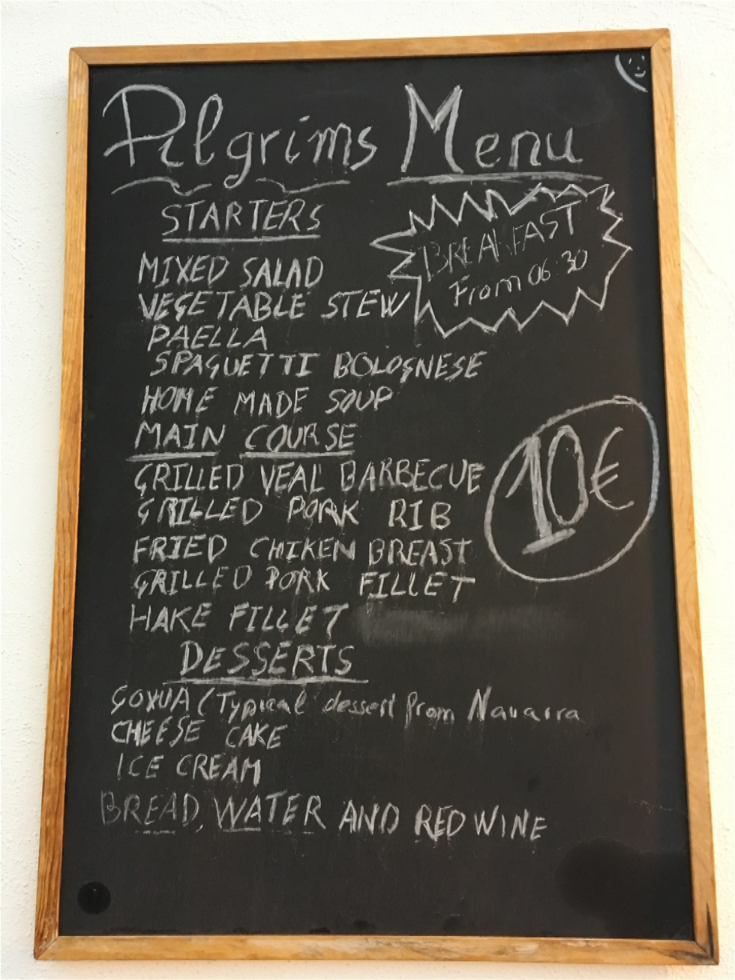 Pilgrims Menu
STARTERS
BREAKFAST
From 06:30
MIXED SALAD
VEGETABLE STEW
PAELLA
SPAGUETTI BOLOGNESE
HOME MADE SOUP
MAIN COURSE
10€
GRILLED VEAL BARBECUE
GRILLED PORK RIB
FRIED CHIKEN BREAST
GRILLED PORK FILLET
HAKE FILLET
DESSERTS
GOXUA (Typical dessert from Navarra
CHEESE CAKE
ICE CREAM
BREAD, WATER AND RED WINE